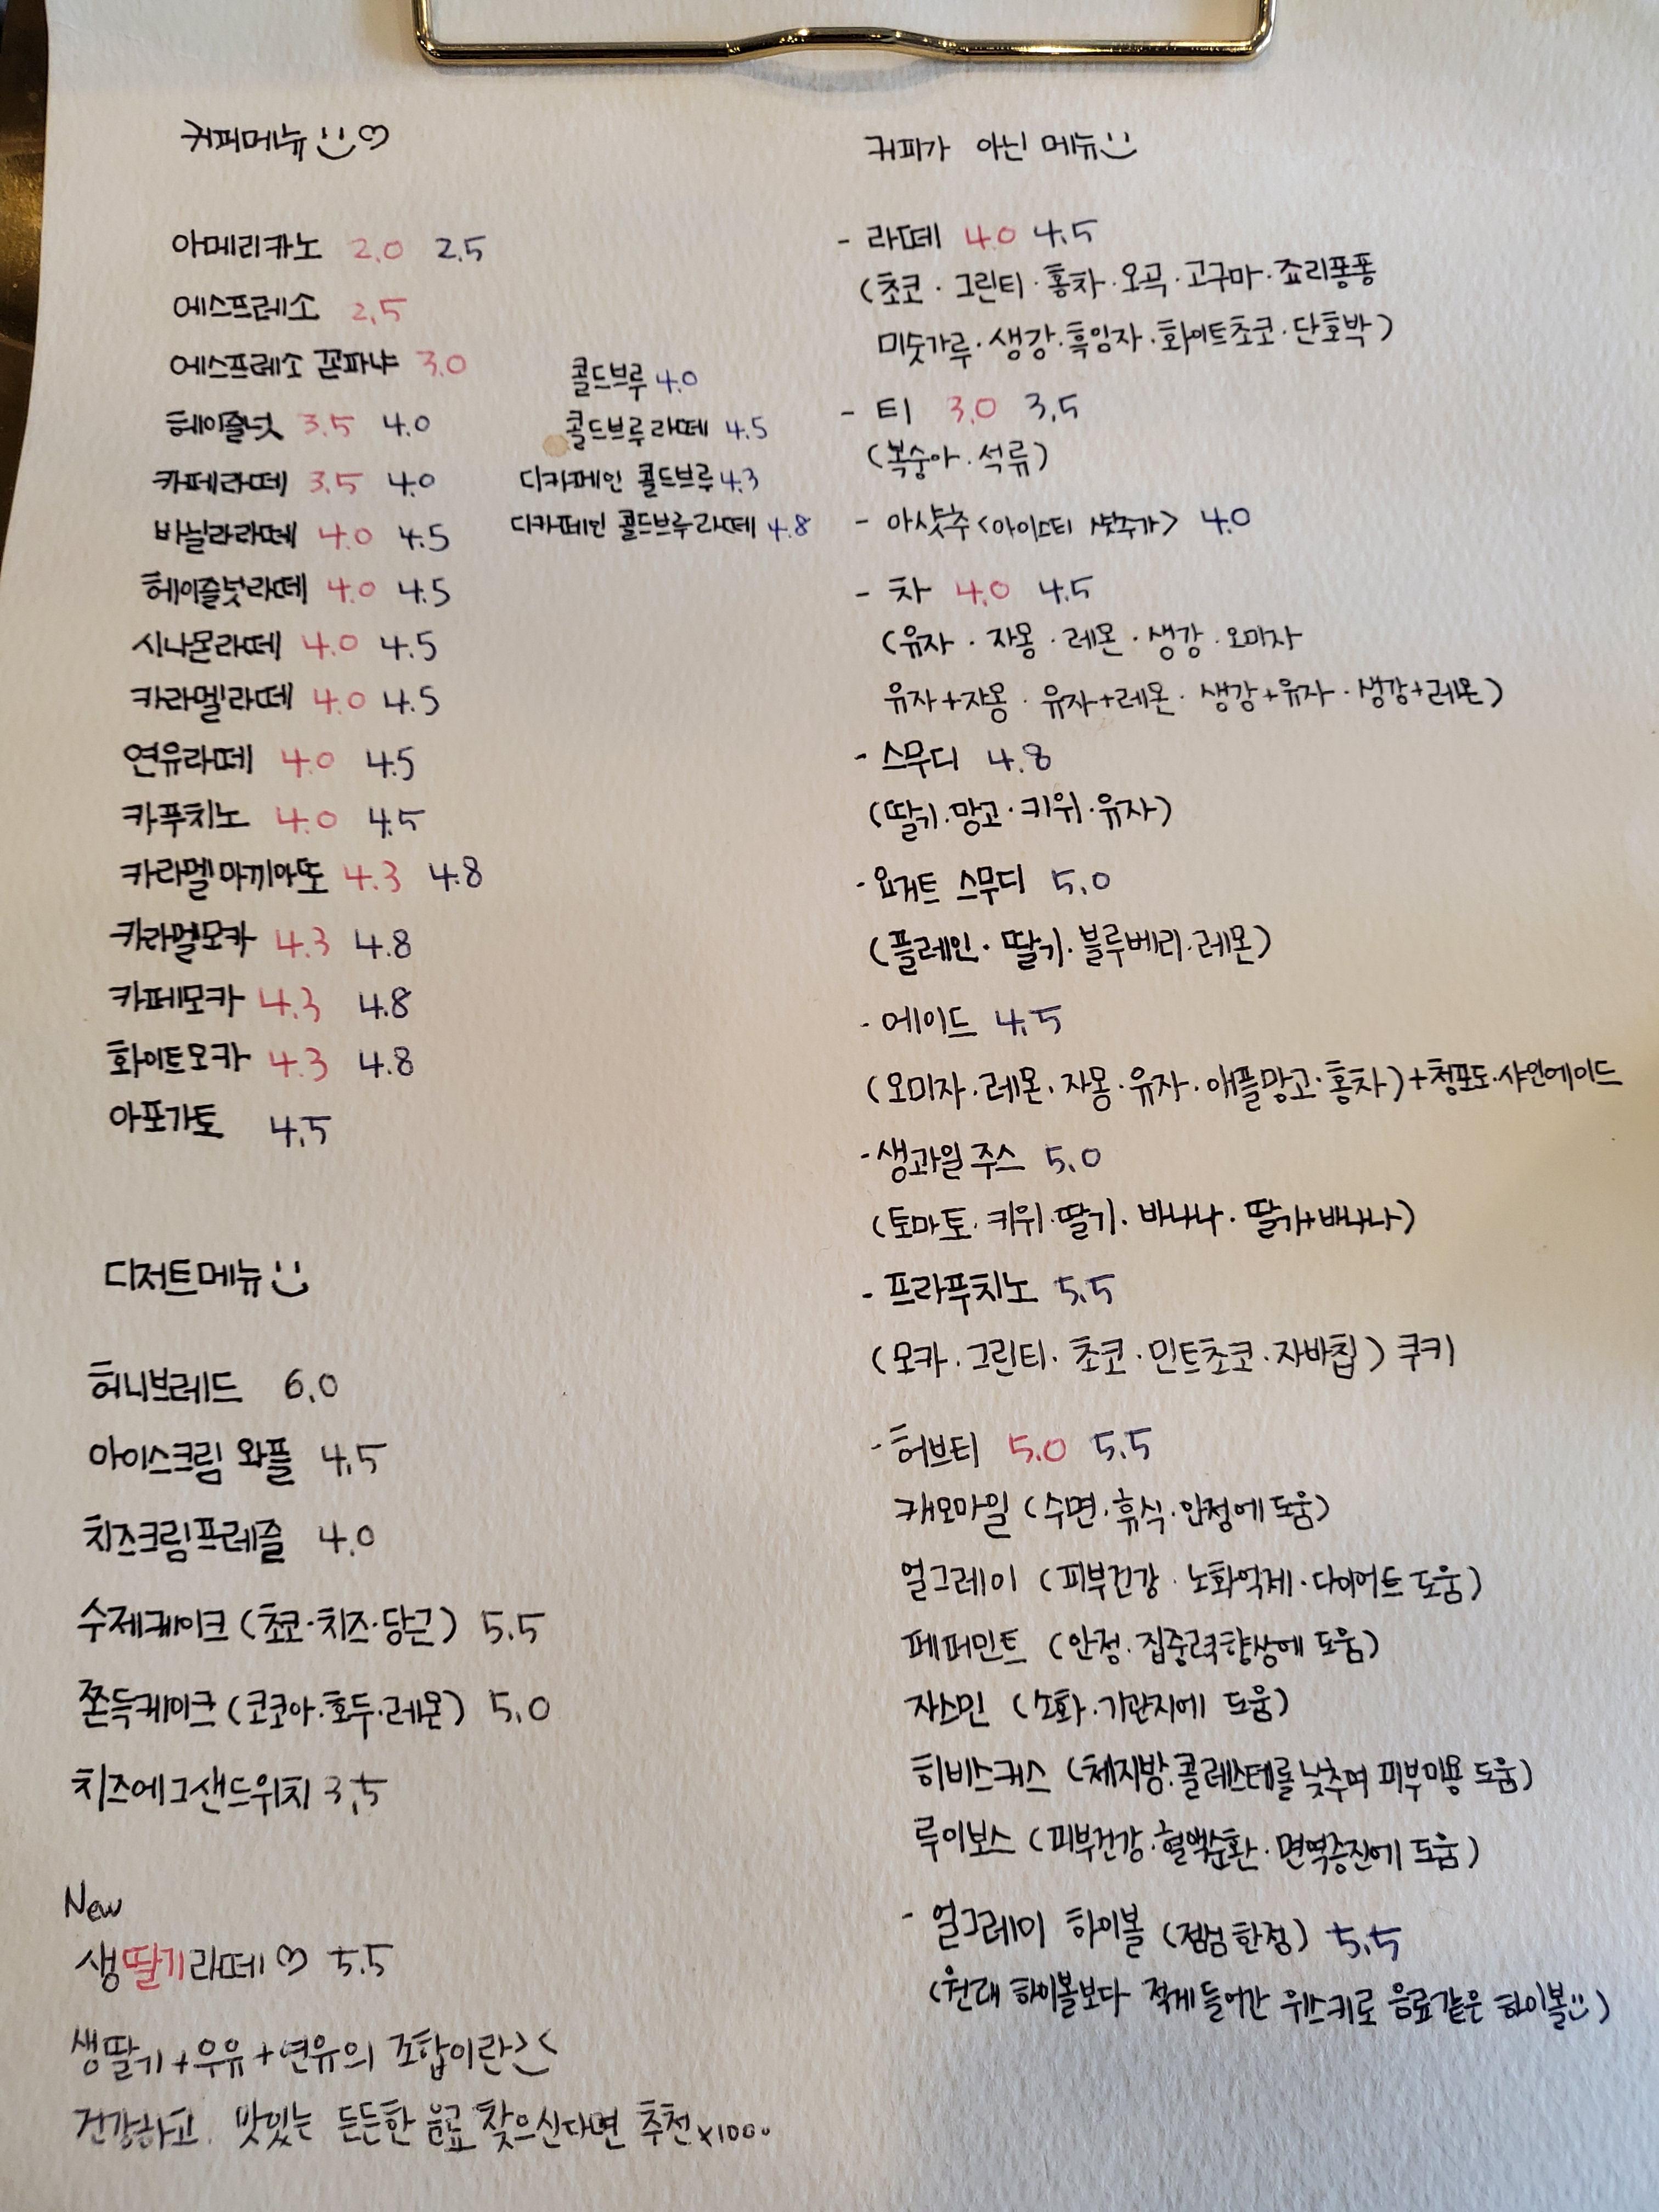 커피메뉴
아메리카노 2.0 2.5
에스프레소 2.5
에스프레소 꼰파냐 3.0
헤이즐넛 3.5 4.0
카페라떼 3.5 4.0
바닐라라떼 4.0 4.5
헤이즐넛라떼 4.0 4.5
시나몬라떼 4.0 4.5
카라멜라떼 4.0 4.5
연유라떼 4.0 4.5
카푸치노 4.0 4.5
카라멜마끼아또 4.3 4.8
카라멜모카 4.3 4.8
카페모카 4.3 4.8
화이트모카 4.3 4.8
아포가토 4.5
콜드브루 4.0
콜드브루라떼 4.5
디카페인 콜드브루 4.3
디카페인 콜드브루라떼 4.8
디저트메뉴
허니브레드 6.0
아이스크림 와플 4.5
치즈크림프레즐 4.0
수제케이크 (초코·치즈·당근) 5.5
쫀득케이크 (코코아·호두·레몬) 5.0
치즈에그샌드위치 3.5
New
생딸기라떼♡ 5.5
생딸기+우유+연유의 조합이란><
건강하고 맛있는 든든한 음료 찾으신다면 추천x1000
커피가 아닌 메뉴
- 라떼 4.0 4.5
(초코·그린티·홍차·오곡·고구마·죠리퐁퐁
미숫가루·생강·흑임자·화이트초코·단호박)
- 티 3.0 3.5
(복숭아·석류)
- 아샷추<아이스티 샷추가> 4.0
- 차 4.0 4.5
(유자·자몽·레몬·생강·오미자
유자+자몽·유자+레몬·생강+유자·생강+레몬)
- 스무디 4.8
(딸기·망고·키위·유자)
- 요거트 스무디 5.0
(플레인·딸기·블루베리·레몬)
- 에이드 4.5
(오미자·레몬·자몽·유자·애플망고·홍차)+청포도·샤인에이드
- 생과일 주스 5.0
(토마토·키위·딸기·바나나·딸기+바나나)
- 프라푸치노 5.5
(모카·그린티·초코·민트초코·자바칩) 쿠키
- 허브티 5.0 5.5
캐모마일 (수면·휴식·안정에 도움)
얼그레이 (피부건강·노화억제·다이어트 도움)
페퍼민트 (안정·집중력향상에 도움)
자스민 (소화·기관지에 도움)
히비스커스 (체지방·콜레스테롤 낮추며 피부미용 도움)
루이보스 (피부건강·혈액순환·면역증진에 도움)
- 얼그레이 하이볼 (점넘한정) 5.5
(원래 하이볼보다 적게 들어간 위스키로 음료같은 하이볼)